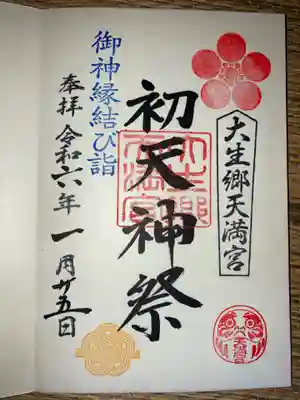 大生郷天満宮
初天神祭
大生郷
天満宮
御神縁結び詣
奉拝 令和六年一月廿五日